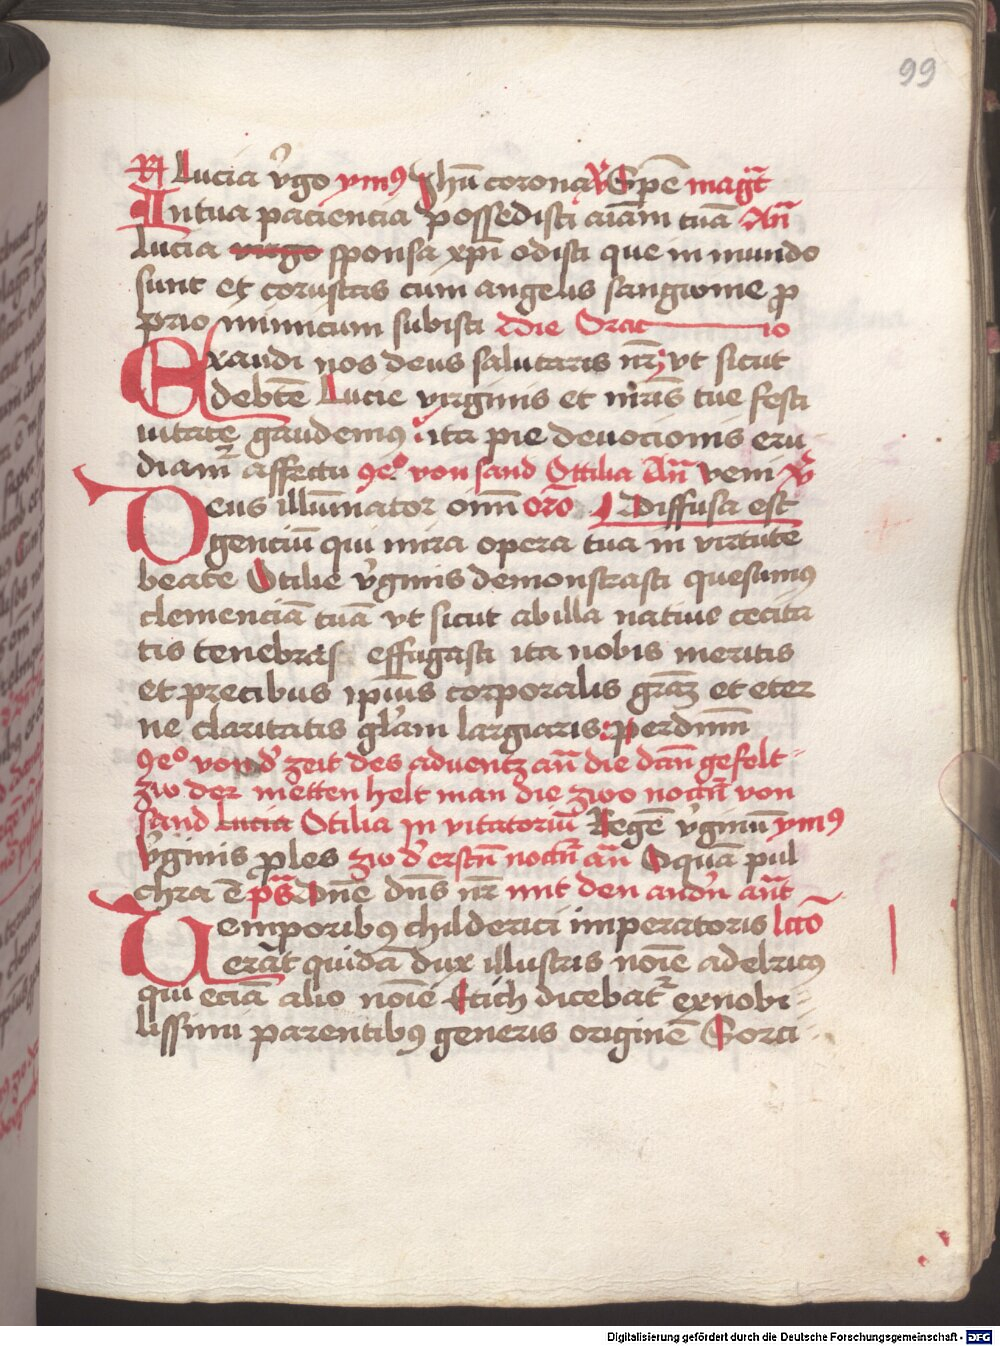 99
R Lucia v̓go ymꝰ Jhū corona v̓ Spē magt̄
In tua paciencia possedisti aīam tuā An̄
Lucia virgo sponsa xpī odisti que in mundo
sunt et coruscas cum angelis sangwine ꝓ
prio inimicum subisti Oracio
Exaudi nos deus salutaris nr̄ vt sicut
de btē Lucie virginis et mr̄is tue festi
uitate gaudemus ita pie deuocionis eru
diamᷣ affectu ꝯeͦ von sand Ottilia An̄ veni v̓
Deus illuminator oīm orō Diffusa est
genciū qui mira opera tua in virtute
beate Otilie v̓ginis demonstrasti quesumꝰ
clemenciā tuā vt sicut ab illa natiue cecita
tis tenebras effugasti ita nobis meritis
et precibus ipīus corporalis grām et eter
ne claritatis glam largiaris per dnm̄
ꝯeͦ von d̓ zeit des aduentz an̄ die dan̄ gefelt
zw der metten helt man die zwo noctn̄ von
sand Lucia Otilia invitatoriū Regē v̓ginū ymꝰ
v̓ginis ꝓles zw d̓ erstn̄ noctn̄ an̄ O quā pul
chra ē ps̄ Dn̄e dn̄s nr̄ mit den andn̄ ant̄
Temporibꝰ childerici imperatoris lctō
erat quidā dux illustris noīe adelricꝰ
qui eciā alio noīe Etich dicebatᷣ ex nobi
lissimi parentibꝰ generis originē Sorti
Digitalisierung gefördert durch die Deutsche Forschungsgemeinschaft - DFG